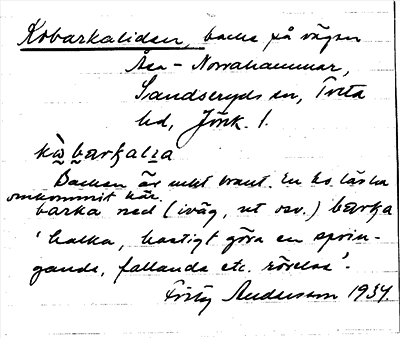 Kobarkaliden, backe på vägen
Åsa - Norrahammar,
Sandseryds sn, Tveta
hd, Jönk. l.
kò barkalia
Backen är mkt brant. En ko läs ha
omkommit här.
barka ned (iväg, ut osv.) barka
'halka, hastigt göra en sprin-
gande, fallande etc. rörelse'.
Fritz Andersson 1934.